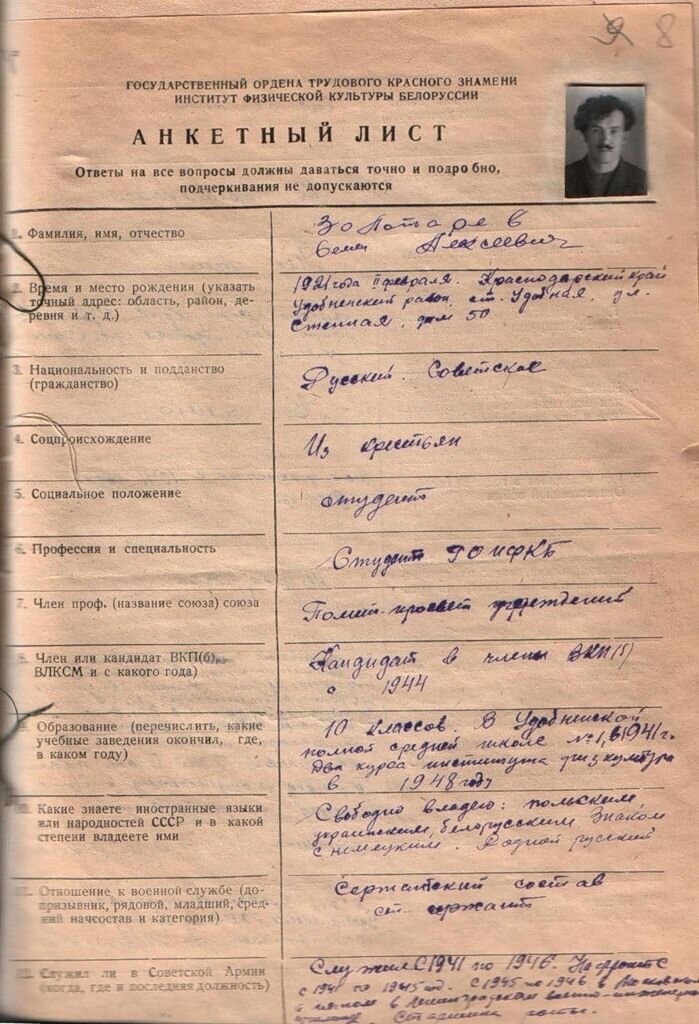 8
ГОСУДАРСТВЕННЫЙ ОРДЕНА ТРУДОВОГО КРАСНОГО ЗНАМЕНИ
ИНСТИТУТ ФИЗИЧЕСКОЙ КУЛЬТУРЫ БЕЛОРУССИИ
АНКЕТНЫЙ ЛИСТ
Ответы на все вопросы должны даваться точно и подробно,
подчеркивания не допускаются
1. Фамилия, имя, отчество
Золотарев
Семен Алексеевич
2. Время и место рождения (указать
точный адрес: область, район, де-
ревня и т. д.)
1921 года 2 февраля. Краснодарский край
Удобненский район, ст. Удобная, ул.
Степная, дом 50
3. Национальность и подданство
(гражданство)
Русский. Советское
4. Соцпроисхождение
Из крестьян
5. Социальное положение
студент
6. Профессия и специальность
Студент ГОИФКБ
7. Член проф. (название союза) союза
Полит-просвет учреждений
8. Член или кандидат ВКП(б),
ВЛКСМ и с какого года)
Кандидат в члены ВКП(б)
с 1944
9. Образование (перечислить, какие
учебные заведения окончил, где,
в каком году)
10 классов. В Удобненской
полной средней школе №1, в 1941 г.
Два курса института физкультура
в 1948 году
10. Какие знаете иностранные языки
или народностей СССР и в какой
степени владеете ими
Свободно владею: польским,
украинским, белорусским Знаком
с немецким. Родной русский
11. Отношение к военной службе (до-
призывник, рядовой, младший, сред-
ний начсостав и категория)
Сержантский состав
ст. сержант
12. Служил ли в Советской Армии
(когда, где и последняя должность)
Служил с 1941 по 1946. На фронте
с 1941 по 1945 год. с 1945 по 1946 в Московском
и потом в Ленинградском военно-инженерн
училищ Старшина роты.